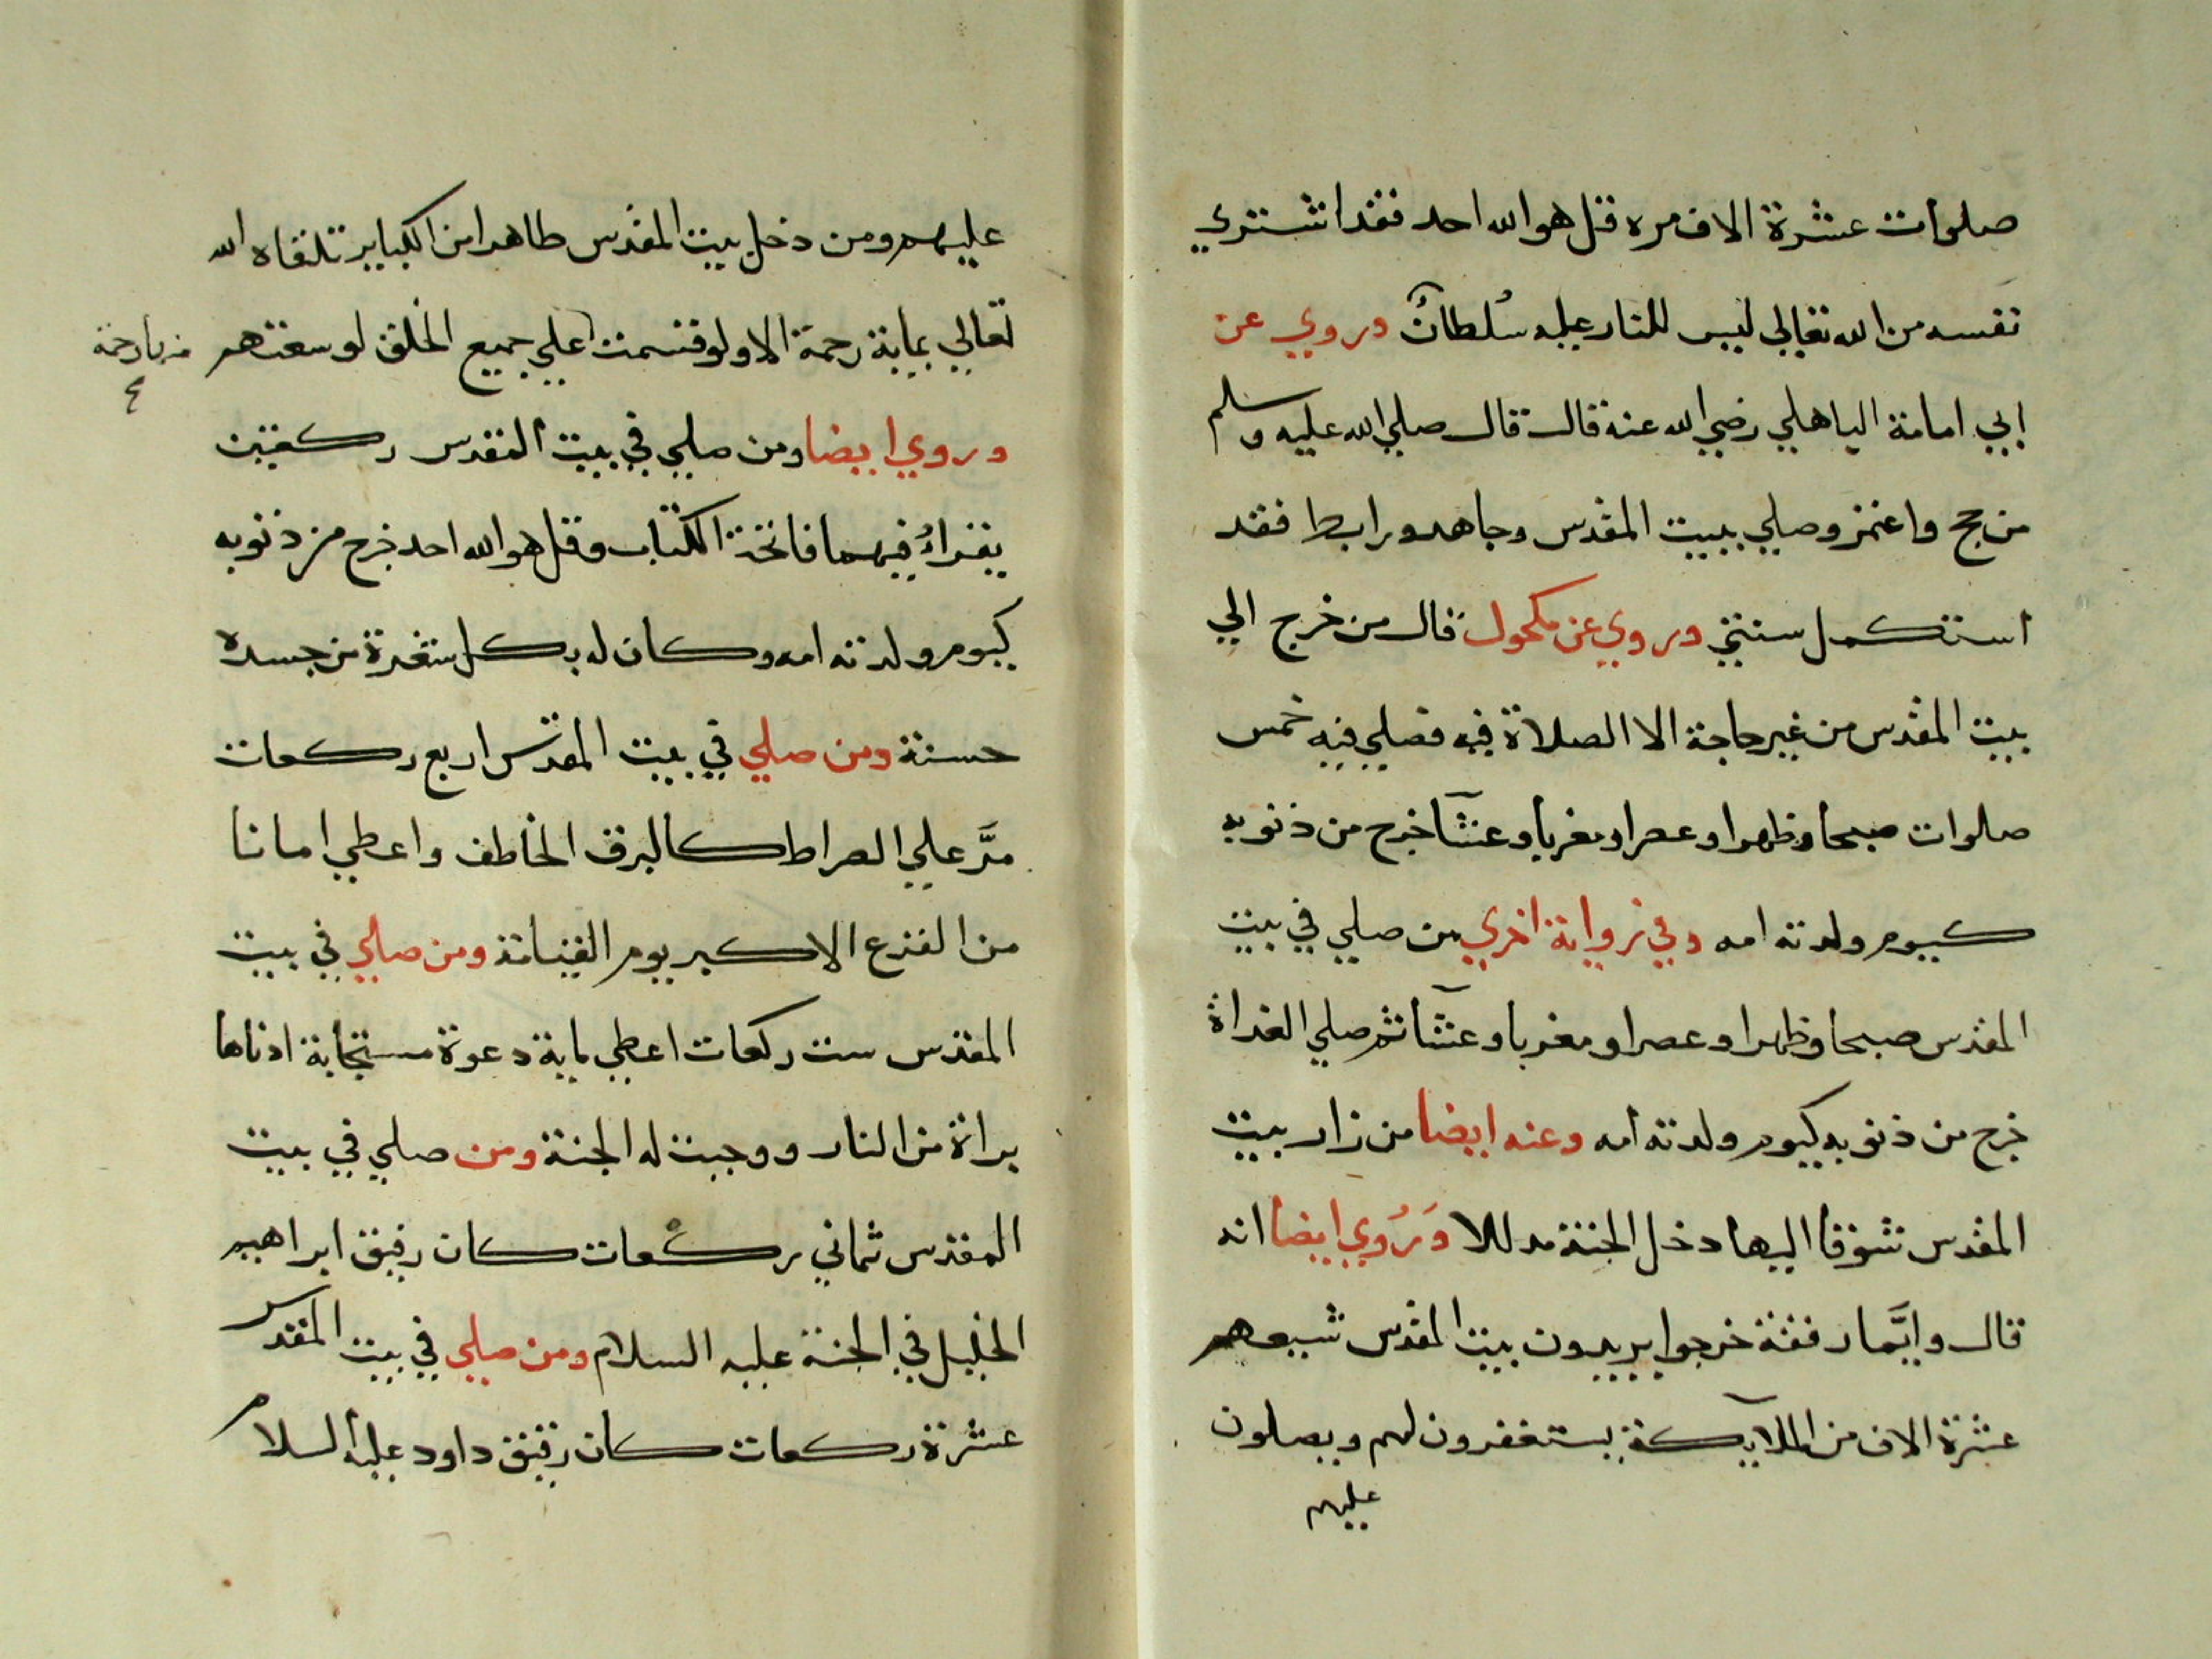 صلوات عشرة الاف مره قل هو الله احد فقد اشتري
نفسه من الله تعالي ليس للنار عليه سُلطانٌ وروي عن
ابي امامة الباهلي رضي الله عنه قال قال صلي الله عليه وسلم
من حج واعتمر وصلي ببيت المقدس وجاهد ورابط فقد
استكمل سنتي وروي عن مكحول قال من خرج الي
بيت المقدس من غير حاجة الا الصلاة فيه فصلي فيه خمس
صلوات صبحا وظهرا وعصرا ومغربا وعشآ خرج من ذنوبه
كيوم ولدته امه وفي رواية اخري من صلي في بيت
المقدس صبحا وظهرا وعصرا ومغربا وعشآ ثم صلي الغداة
خرج من ذنوبه كيوم ولدته امه وعنه ايضا من زار بيت
المقدس شوقا اليها دخل الجنة مدللا وَرُوي ايضا انه
قال وايَّما رفقة خرجوا يريدون بيت المقدس شيعهم
عشرة الاف من الملآيكة يستغفرون لهم ويصلون
عليهم
عليهم ومن دخل بيت المقدس طاهرا من الكباير تلقاه الله
تعالي بماية رحمة الا ولو قسمت علي جميع الخلق لوسعتهم
وروي ايضا ومن صلي في بيت المقدس ركعتين
يقراءُ فيهما فاتحة الكتاب وقل هو الله احد خرج من ذنوبه
كيوم ولدته امه وكان له بكل شعرة من جسده
حسنة ومن صلي في بيت المقدس اربع ركعات
مَرَّ علي الصراط كالبرق الخاطف واعطي امانا
من الفزع الاكبر يوم القيامة ومن صلي في بيت
المقدس ست ركعات اعطي ماية دعوة مستجابة ادناها
براة من النار ووجبت له الجنة ومن صلي في بيت
المقدس ثماني ركعات كان رفيق ابراهيم
الخليل في الجنة عليه السلام ومن صلي في بيت المقدس
عشرة ركعات كان رفيق داود عليه السلام